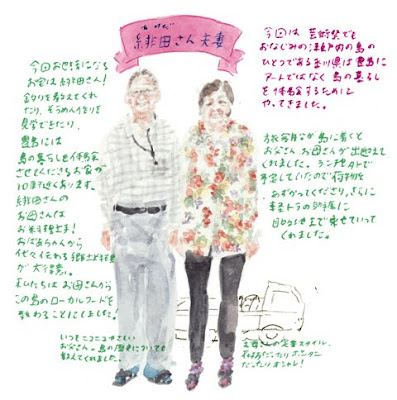 緋田さん夫妻
今回は 芸術祭でも
おなじみの瀬戸内の島の
ひとつである香川県は豊島に
アートではなく 島の暮らし
を体験するために
やってきました。
今回お世話になる
お宅は緋田さん!
釣りを教えてくれ
たり、そうめん作りを
見学できたり、
豊島には
島の暮らしを体験
させてくださるお家が
10軒近くあります。
緋田家の
お母さんは
お料理上手!
おばあちゃんから
代々伝わる郷土料理
が大得意。
私たちは お母さんから
この島のローカルフードを
教わることにしました。
旅客船が島に着くと
お父さん お母さんが出迎えて
くれました。ランチを外で
予定していたので荷物を
あずかってくださり、さらに
軽トラの助席に
目的地まで乗せていって
くれました。
いつもニコニコやさしい
お父さん。島の歴史についても
教えてくれました。
お母さんの定番スタイル。
だったりオシャレ!